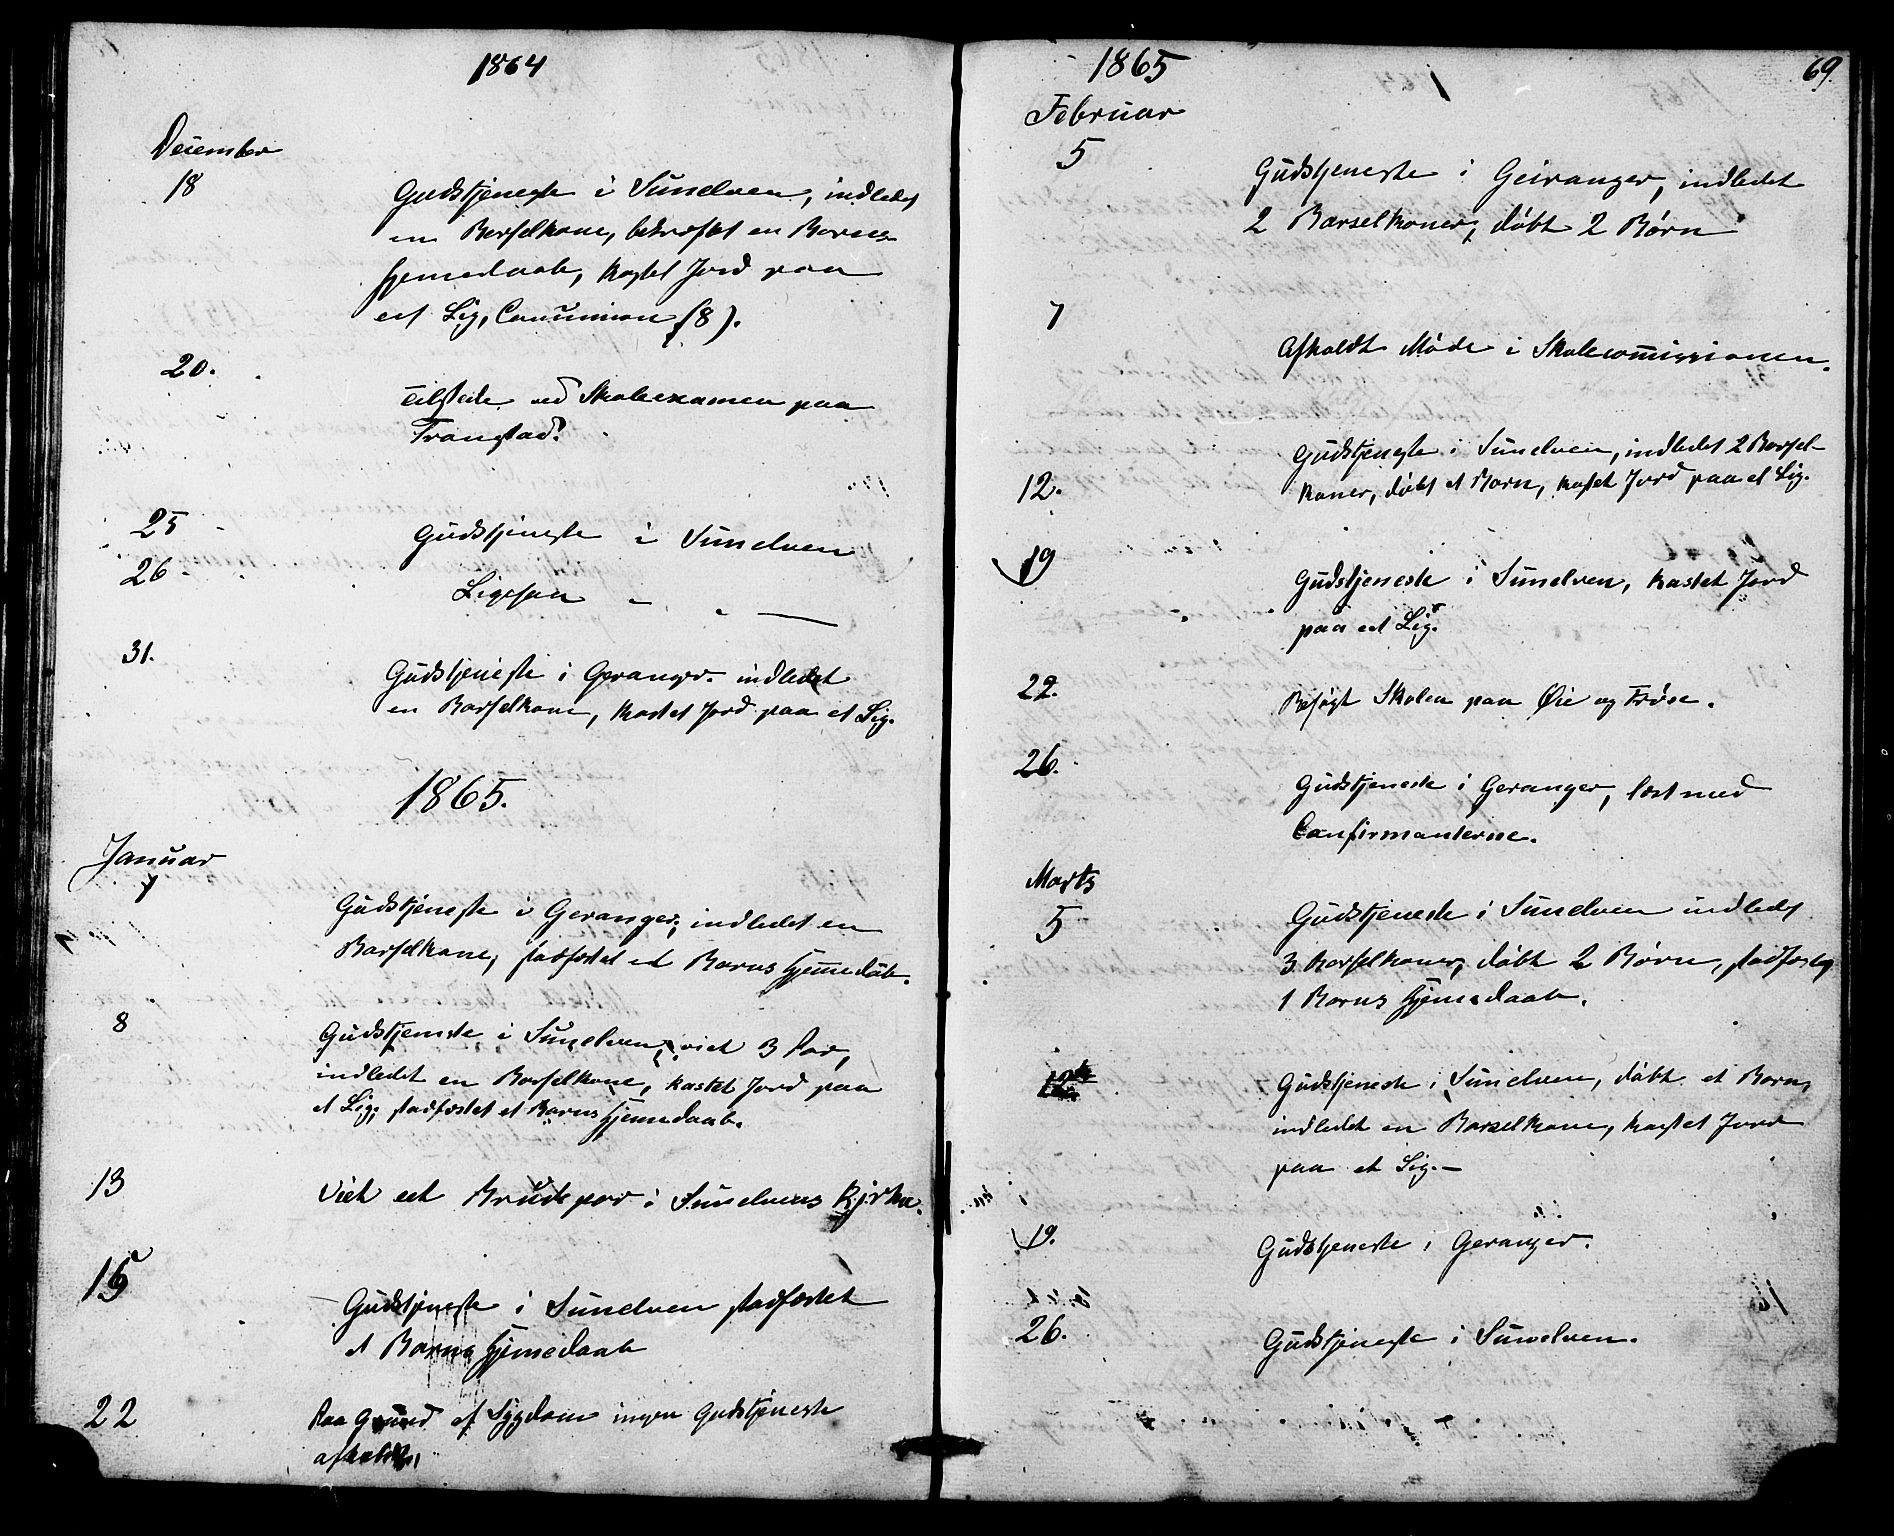 1864
December
18
Gudstjeneste i Sunelven, indledet
en Barselkone, bekræftet en Barns
Hjemedaab, kastet Jord paa
eet Lig, Comunion (8).
20.
Tilstede ved Skoleexamen paa
25
Gudstjeneste i Sunelven
26
Ligesaa " " —
31.
Gudstjeneste i Geranger. indledet
en Barselkone, kastet Jord paa et Lig.
1865.
Januar
1
Gudstjeneste i Geranger, indledet en
Barselkone, stadfæstet et Barns Hjemedåb.
8
Gudstjeneste i Sunelven, viet 3 Par,
indledet en Barselkone, kastet Jord paa
et Lig, stadfæstet et Barns Hjemedaab.
13
Viet eet Brudepar i Sunelvens Kjrke.
15
Gudstjeneste i Sunelven stadfæstet
et Barns Hjemedaab
22
Paa Grund af Sygdom ingen Gudstjeneste
afholdt.
1865
69
Februar
5
Gudstjeneste i Geiranger, indledet
2 Barselkoner, døbt 2 Børn
7
Afholdt Møde i Skolecommissionen.
12.
Gudstjeneste i Sunelven, indledet 2 Barsel-
koner, døbt et Barn, kastet Jord paa et Lig.
19
Gudstjeneste i Sunelven, kastet Jord
paa eet Lig.
22.
Besøgt Skolen paa Øie og
26.
Gudstjeneste i Geranger, læst med
Confirmanterne.
Marts
5
Gudstjeneste i Sunelven indledet
3 Barselkoner, døbt 2 Børn, stadfæstet
1 Barns Hjemedaab.
12te
Gudstjeneste i Sunelven, døbt et Barn,
indledet en Barselkone, kastet Jord
paa et Lig.—
19.
Gudstjeneste i Geranger.
26.
Gudstjeneste i Sunelven.